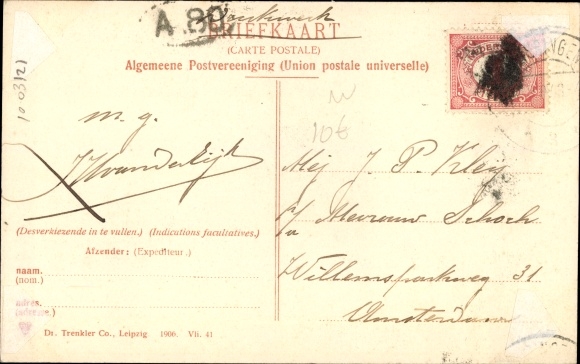 Drukwerk
A.80
BRIEFKAART
(CARTE POSTALE)
Algemeene Postvereeniging (Union postale universelle)
10 03/21
10€
m. g.
(Desverkiezende in te vullen.) (Indications facultatives.)
Afzender: (Expediteur.)
naam.
(nom.)
adres.
(adresse.)
Mej J. P. Kleij
p/a Mevrouw Schoch
Willemsparkweg 31
Amsterdam
Dr. Trenkler Co., Leipzig. 1906. Vii. 41